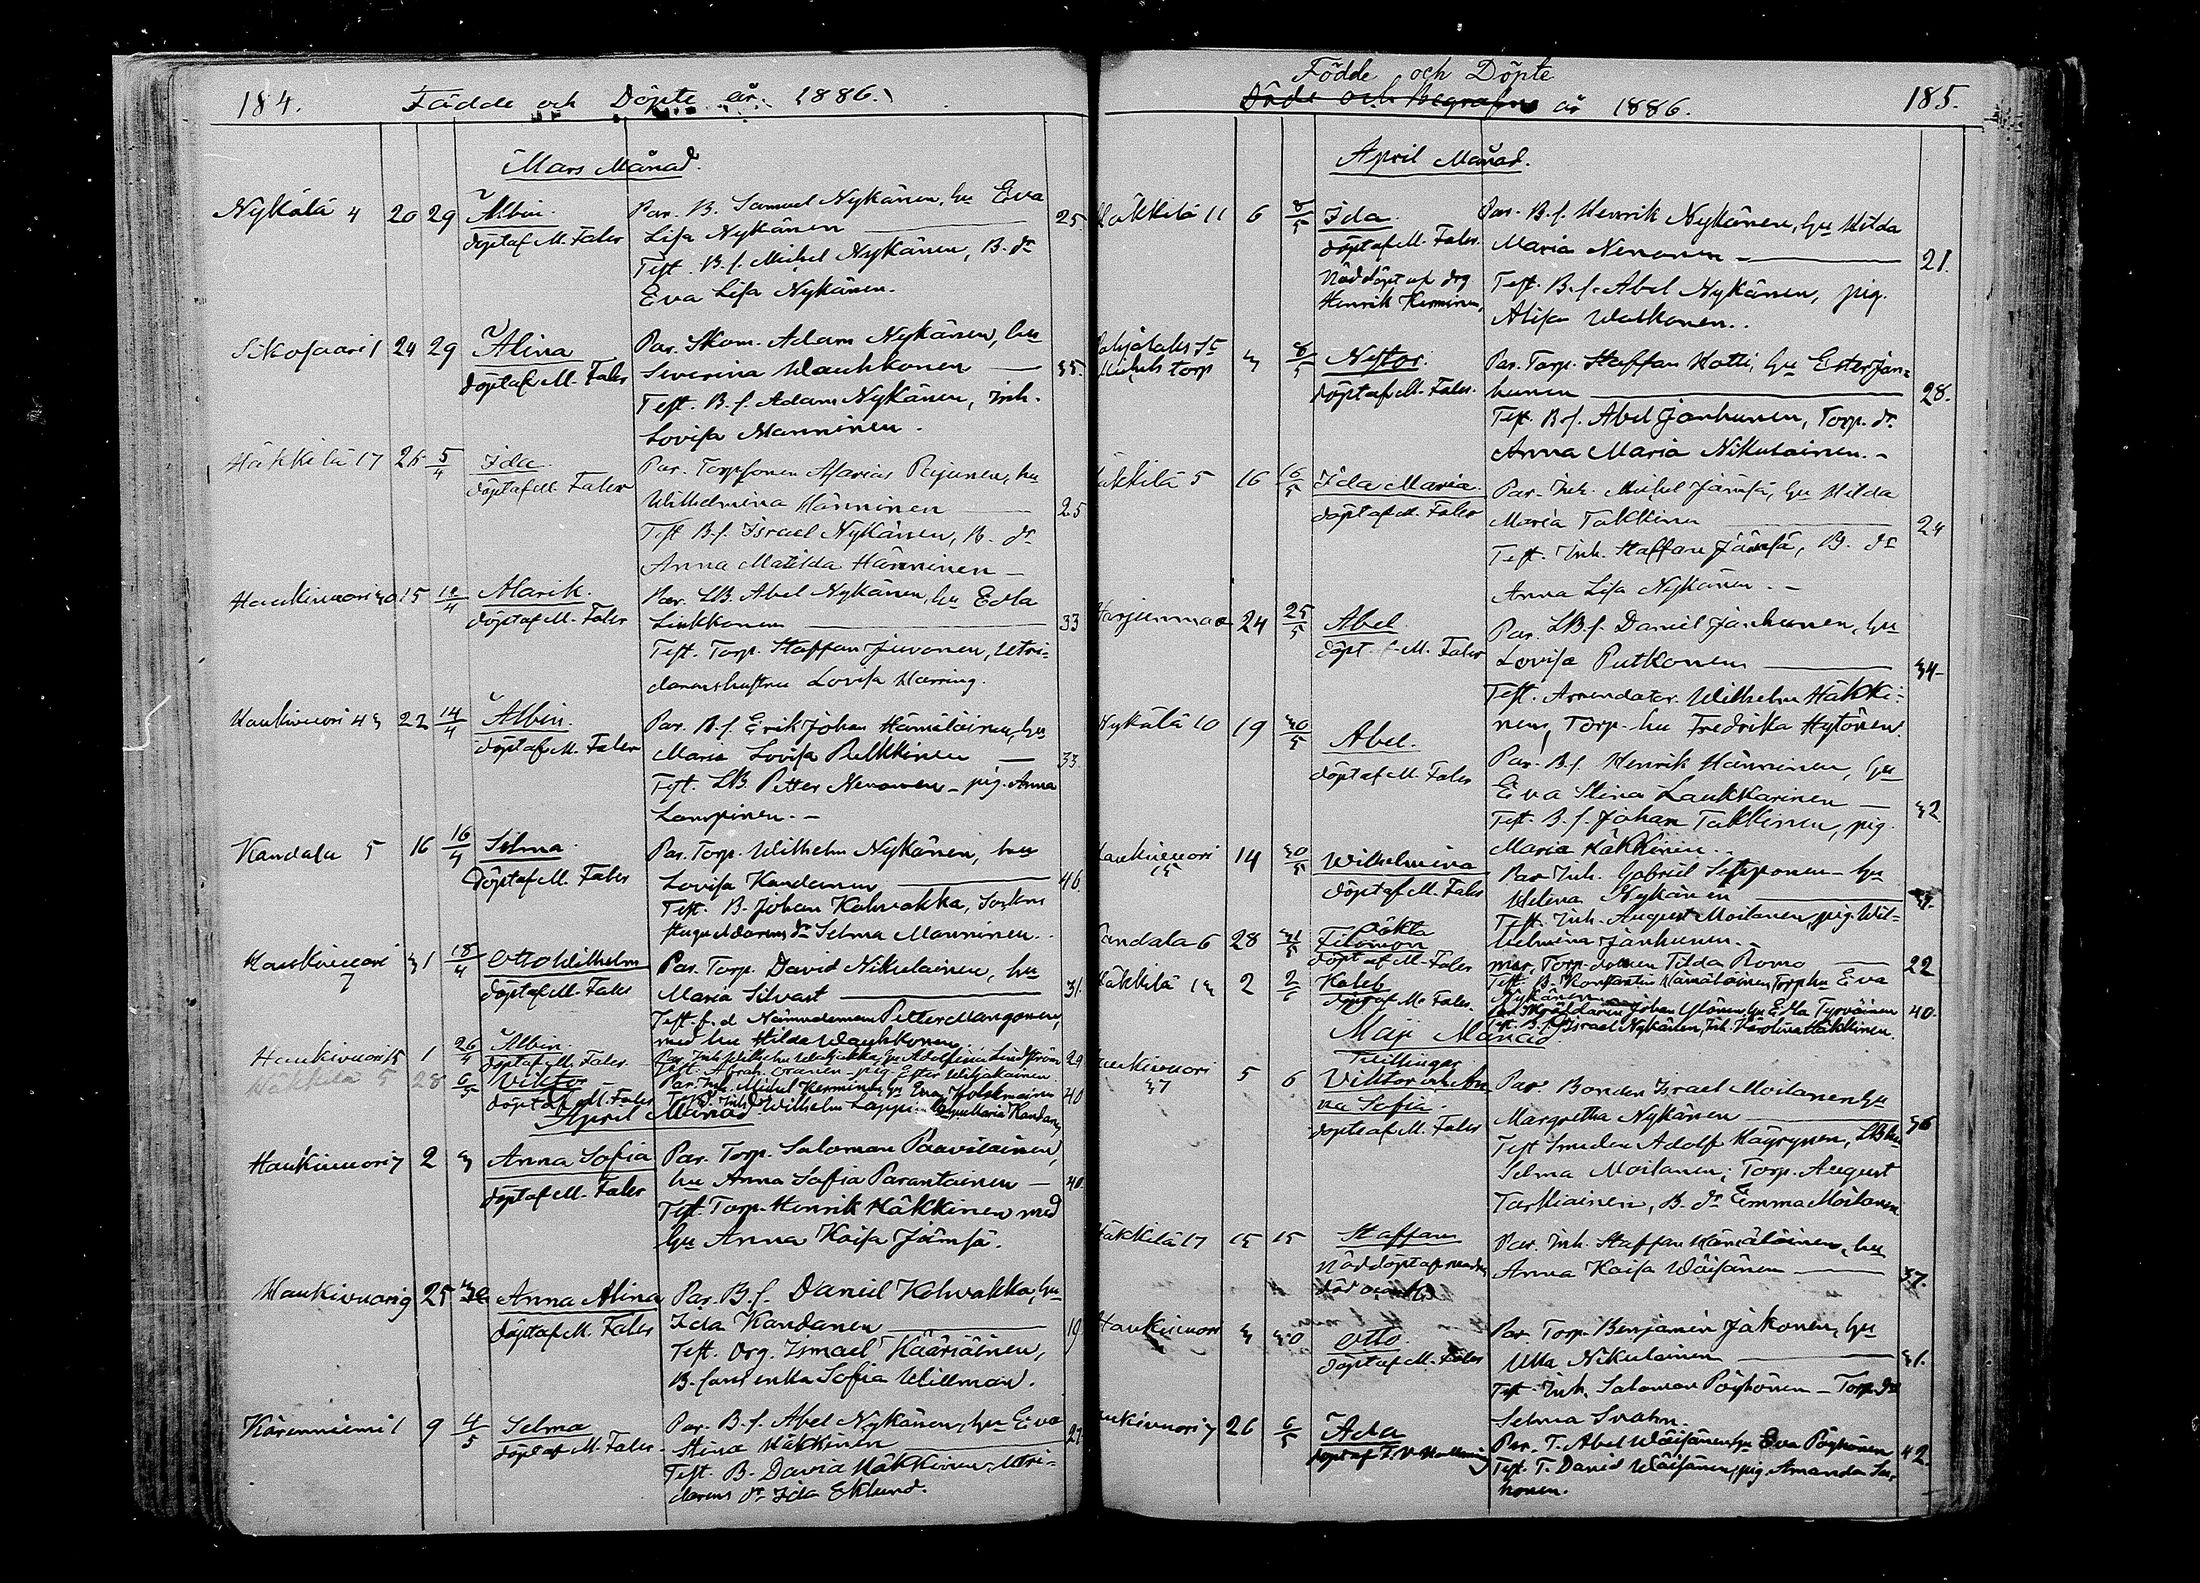 184. Födde och Döpte år 1886.
Mars Månad.
Nykälä 4 20 29 Albin. Par. B. Samuel Nykänen, hu Eva
döpt af M. Faler Lisa Nykänen 25.
Test. B. s. Michel Nykänen, B. dr
Eva Lisa Nykänen.
24 29 Alina Par. Skom. Adam Nykänen, hu
döpt af M. Faler Severina Waukkonen 35.
Test. B. s. Adam Nykänen, Inh.
Lovisa Manninen.
Häkkilä 17 5/4 Ida. Par. Torpsonen Pejunen, hu
döpt af M. Faler Wilhelmina Hänninen 25
Test B. s. Israel Nykänen, B. dr
Anna Matilda Hänninen
Haukivuori 30 15 Alarik. Par. LB. Abel Nykänen, hu Edla
döpt af M. Faler Liukkonen 33
Test. Torp. Staffan Juvonen, Utri-
dareenshustru Lovisa Harring.
Haukivuori 43 22 14/4 Albin. Par. B. s. Erik Johan Hämäläinen, hu
döpt af M. Faler Maria Lovisa Pulkkinen 33.
Test. LB. Petter Nenonen - pig. Anna
Lampinen.
Kandala 5 16 16/4 Selma. Par. Torp. Wilhelm Nykänen, hu
döpt af M. Faler Lovisa Kandanen 46.
Test. B. Johan Kolvakka,
dr Selma Manninen.
Haukivuori 7 31 18/4 Otto Wilhelm Par. Torp. David Nikulainen, hu
döpt af M. Faler Maria Silvast 31.
Test. f. d. Nämndeman Petter Mangonen,
med hu Hilda Waukkonen.
Haukivuori 15 1 26/4 Albin. Par. Inh. Wilhelm hu Adolfina Lindström 29
döpt af M. Faler Test. Abrah. pig Ester
Häkkilä 5 28 6/5 Viktor Par. Inh. Michel Kerminen, hu Eva 40
döpt af M. Faler Wilhelm Lappi Maria Kandanen
April Månad
Haukivuori 7 2 3 Anna Sofia Par. Torp. Saloman Paavilainen,
döpt af M. Faler hu Anna Sofia Parantainen 40.
Test. Torp. Henrik Häkkinen med
hu Anna Kaisa Jämsä.
Haukivuori 9 25 Anna Alina Par. B. s. Daniel Kolvakka, hu
döpt af M. Faler Ida Kandanen 19.
Test. Org. Ismael Kääriäinen,
B. sons enka Sofia Willman.
Kärenniemi 1 9 4/5 Selma Par. B. s. Abel Nykänen, hu Eva
döpt af M. Faler Stina Häkkinen 27
Test. B. David Häkkinen, Utri-
darens dr Ida Eklund.
Födde och Döpte
Döde och Begrafne år 1886. 185.
April Månad.
Häkkilä 11 6 Ida. Par. B. s. Henrik Nykänen, hu Hilda
döpt af M. Faler. Maria Nenonen 21.
Nöddöpt af drg Test. B. s. Abel Nykänen, pig.
Henrik Kerminen, Alisa Walkonen.
torp 3 8/5 Nestor. Par. Torp. Staffan Kotti, hu Ester Jan-
döpt af M. Faler. hunen 28.
Test. B. s. Abel Janhunen, Torp. dr
Anna Maria Nikulainen.
Häkkilä 5 16 16/5 Ida Maria. Par. Inh. Michel Jämsä, hu Hilda
döpt af M. Faler Maria Takkinen 24
Test. Inh. Staffan Jämsä, B. dr
Anna Lisa Nykänen.
Harjunmaa 24 25/5 Abel. Par. LB. s. Daniel Janhunen, hu
döpt af M. Faler Lovisa Putkonen 34
Test. Arrendator Wilhelm Häkki-
nen, Torp. hu Fredrika Hytönen.
Nykälä 10 19 30/5 Abel. Par. B. s. Henrik Hänninen, hu
döpt af M. Faler Eva Stina Laukkarinen 32.
Test. B. s. Johan Takkinen, pig.
Maria Häkkinen.
Haukivuori 15 14 30/5 Wilhelmina Par. Inh. Gabriel Sepponen, hu
döpt af M. Faler Helena Nykänen
Test. Inh. August Moilanen, pig. Wil-
helmina Janhunen.
Kandala 6 28 31/5 Oäkta Filemon
döpt af M. Faler mor, Torp. Tilda Romo 22
Test. B. Konstantin Hämäläinen, Torp hu Eva
Nykänen
Häkkilä 13 2 Kaleb Johan Ylönen, hu Edla Tyrväinen 40.
döpt af M. Faler. Test. B. s. Israel Nykänen, Inh. Karolina Häkkinen.
Maji Månad.
Tvillingar
Haukivuori 37 5 6 Viktor och An- Par Bonden Israel Moilanen hu
na Sofia. Margretha Nykänen 36
döpte af M. Faler Test Smeden Adolf Käyrynen, LB hu
Selma Moilanen; Torp. August
Tarkiainen, B. dr Emma Moilanen.
Häkkilä 17 15 15 Staffan Par. Inh. Staffan Hämäläinen, hu
Nöddöpt af Anna Kaisa Wäisänen 37.
död
Haukivuori 3 30 Otto. Par Torp. Benjamin Jäkonen, hu
döpt af M. Faler Ulla Nikulainen 31.
Test. Inh. Saloman Pöyhönen - Torp. dr
Selma Svahn.
Haukivuori 7 26 6/5 Ada Par. T. Abel Wäisänen hu Eva Pöyhönen 42.
döpt af Test. T. David Wäisänen, pig. Amanda